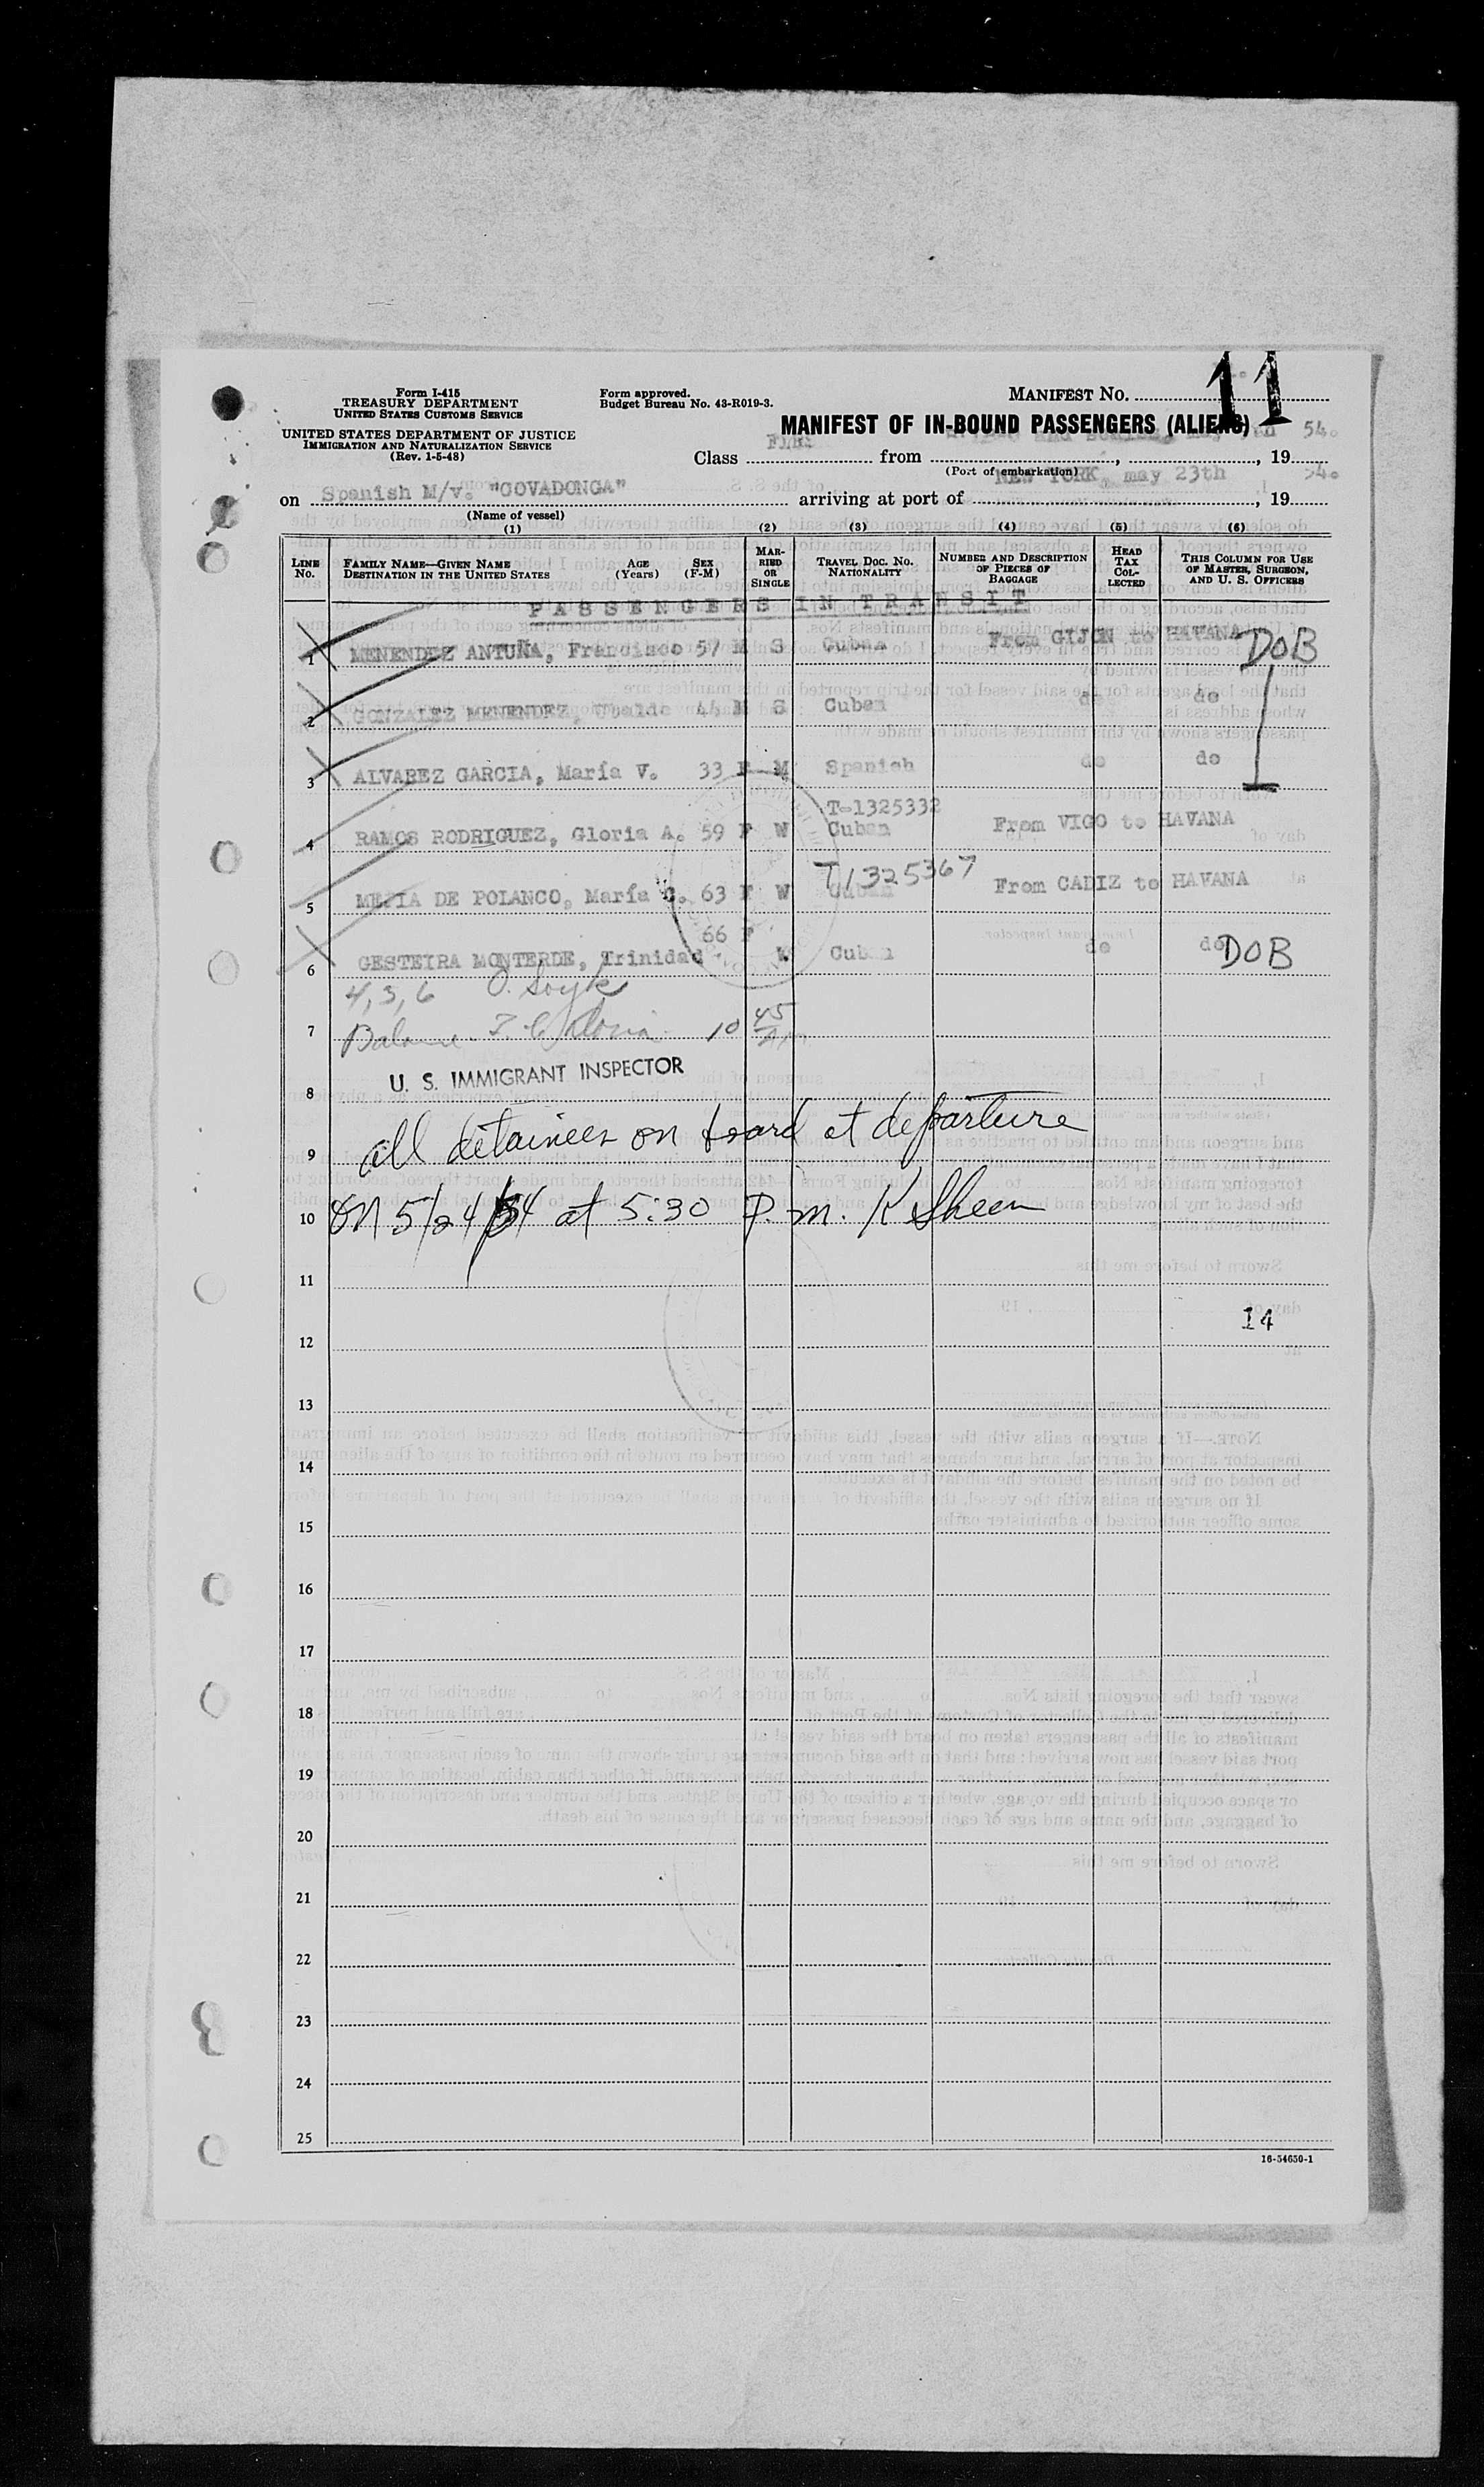 Form I-415
TREASURY DEPARTMENT
UNITED STATES CUSTOMS SERVICE
UNITED STATES DEPARTMENT OF JUSTICE
IMMIGRATION AND NATURALIZATION SERVICE
(Rev. 1-5-48)
Form approved.
Budget Bureau No. 43-R019-3.
MANIFEST NO. 11
MANIFEST OF IN-BOUND PASSENGERS (ALIENS)
Class from , 19 54.
(Port of embarkation)
on Spanish M/v. "COVADONGA" arriving at port of NEW YORK, may 23th , 19 54.
(Name of vessel)
(1) (2) (3) (4) (5) (6)
LINE NO. FAMILY NAME—GIVEN NAME DESTINATION IN THE UNITED STATES AGE (Years) SEX (F-M) MARRIED OR SINGLE TRAVEL DOC. NO. NATIONALITY NUMBER AND DESCRIPTION OF PIECES OF BAGGAGE HEAD TAX COLLECTED THIS COLUMN FOR USE OF MASTER, SURGEON, AND U. S. OFFICERS
PASSENGERS IN TRANSIT
1 MENENDEZ ANTUÑA, Francisco 57 M S Cuban From GIJON to HAVANA DOB
2 GONZALEZ MENENDEZ, Ubaldo 44 M S Cuban do do
3 ALVAREZ GARCIA, María V. 33 F M Spanish do do
T-1325332
4 RAMOS RODRIGUEZ, Gloria A. 59 F W Cuban From VIGO to HAVANA
T1325367
5 MEJIA DE POLANCO, María C. 63 F W Cuban From CADIZ to HAVANA
66 F
6 GESTEIRA MONTERDE, Trinidad W Cuban do do DOB
4, 5, 6
7 10 45 AM
U. S. IMMIGRANT INSPECTOR
8
9 all detainees on board at departure
10 on 5/24/54 at 5:30 P.m. K Sheen
11
14
12
13
14
15
16
17
18
19
20
21
22
23
24
25
16-54650-1